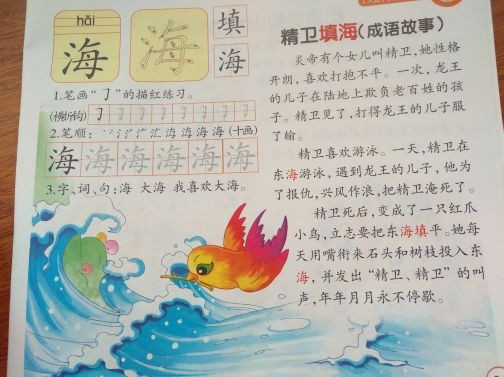 hǎi
海
海
填
海
1.笔画“㇆”的描红练习。
(横折钩)
2.笔顺:
海(十画)
海海海海海海海
3.字、词、句:海 大海 我喜欢大海。
精卫填海(成语故事)
炎帝有个女儿叫精卫,她性格
开朗,喜欢打抱不平。一次,龙王
的儿子在陆地上欺负老百姓的孩
子。精卫见了,打得龙王的儿子服
了输。
精卫喜欢游泳。一天,精卫在
东海游泳,遇到龙王的儿子,他为
了报仇,兴风作浪,把精卫淹死了。
精卫死后,变成了一只红爪
小鸟,立志要把东海填平。她每
天用嘴衔来石头和树枝投入东
海,并发出“精卫、精卫”的叫
声,年年月月永不停歇。